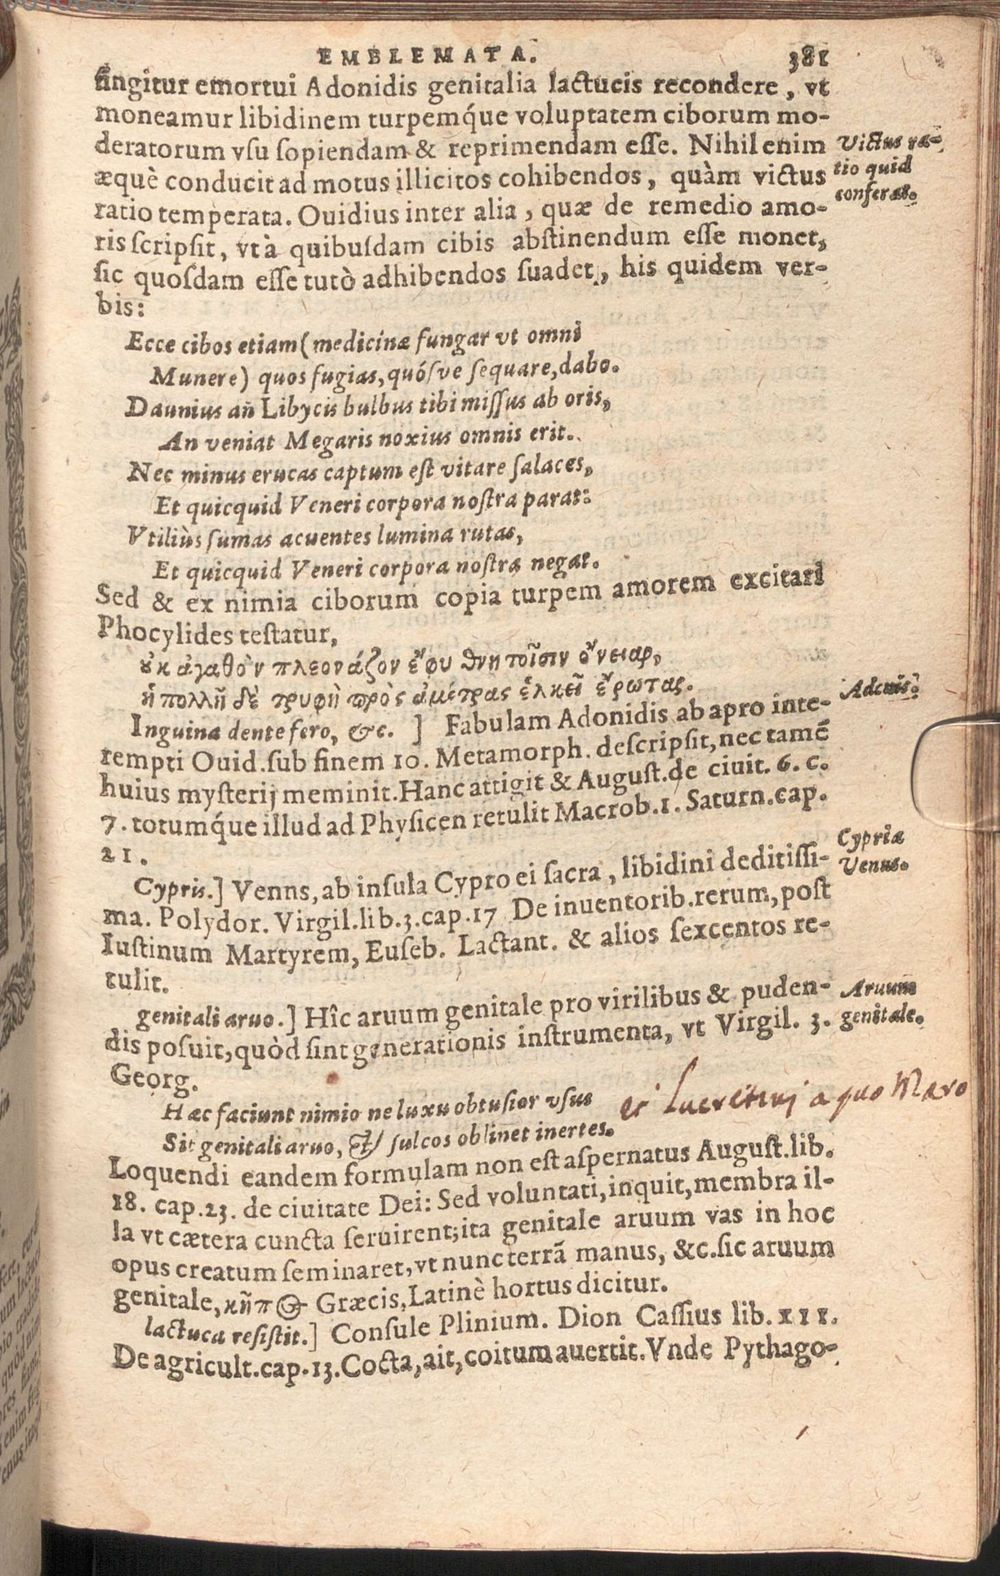 EMBLEMATA. 381
fingitur emortui Adonidis genitalia lactucis recondere, vt
moneamur libidinem turpemq́ue voluptatem ciborum mo-
deratorum vsu sopiendam & reprimendam esse. Nihil enim
Victus ra-
æquè conducit ad motus illicitos cohibendos, quàm victus
tio quid
ratio temperata. Ouidius inter alia, quæ de remedio amo-
conferat.
ris scripsit, vt à quibusdam cibis abstinendum esse monet,
sic quosdam esse tutò adhibendos suadet, his quidem ver-
bis:
Ecce cibos etiam (medicinæ fungar vt omni
Munere) quos fugias, quósve sequare, dabo.
Daunius an Libycis bulbus tibi missus ab oris,
An veniat Megaris noxius omnis erit.
Nec minus erucas captum est vitare salaces,
Et quicquid Veneri corpora nostra parat:
Vtiliùs sumas acuentes lumina rutas,
Et quicquid Veneri corpora nostra negat.
Sed & ex nimia ciborum copia turpem amorem excitari
Phocylides testatur,
οὐκ ἀγαθὸν πλεονάζον ἔφυ θνητοῖσιν ὄνειαρ,
ἡ πολλὴ δὲ τρυφὴ πρὸς ἀμέτρας ἑλκεῖ ἔρωτας.
Inguina dente fero, &c. ] Fabulam Adonidis ab apro inte-
Adonis.
rempti Ouid. sub finem 10. Metamorph. descripsit, nec tamē
huius mysterij meminit. Hanc attigit & August. de ciuit. 6. c.
7. totumq́ue illud ad Physicen retulit Macrob. 1. Saturn. cap.
21.
Cypris.] Venns, ab insula Cypro ei sacra, libidini deditissi-
Cypriæ
Venus.
ma. Polydor. Virgil. lib. 3. cap. 17 De inuentorib. rerum, post
Iustinum Martyrem, Euseb. Lactant. & alios sexcentos re-
tulit.
genitali aruo.] Hîc aruum genitale pro virilibus & puden-
Aruum
dis posuit, quòd sint generationis instrumenta, vt Virgil. 3.
genitale.
Georg.
Hæc faciunt nimio ne luxu obtusior vsus
et Lucretius a quo Maro
Sit genitali aruo, & sulcos oblinet inertes.
Loquendi eandem formulam non est aspernatus August. lib.
18. cap. 23. de ciuitate Dei: Sed voluntati, inquit, membra il-
la vt cætera cuncta seruirent; ita genitale aruum vas in hoc
opus creatum seminaret, vt nunc terrā manus, &c. sic aruum
genitale, κῆπος Græcis, Latinè hortus dicitur.
lactuca resistit.] Consule Plinium. Dion Cassius lib. XII.
De agricult. cap. 13. Cocta, ait, coitum auertit. Vnde Pythago-